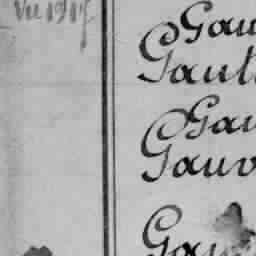 Vu 1917
Gau
Gault
Gau
Gauv
Gau